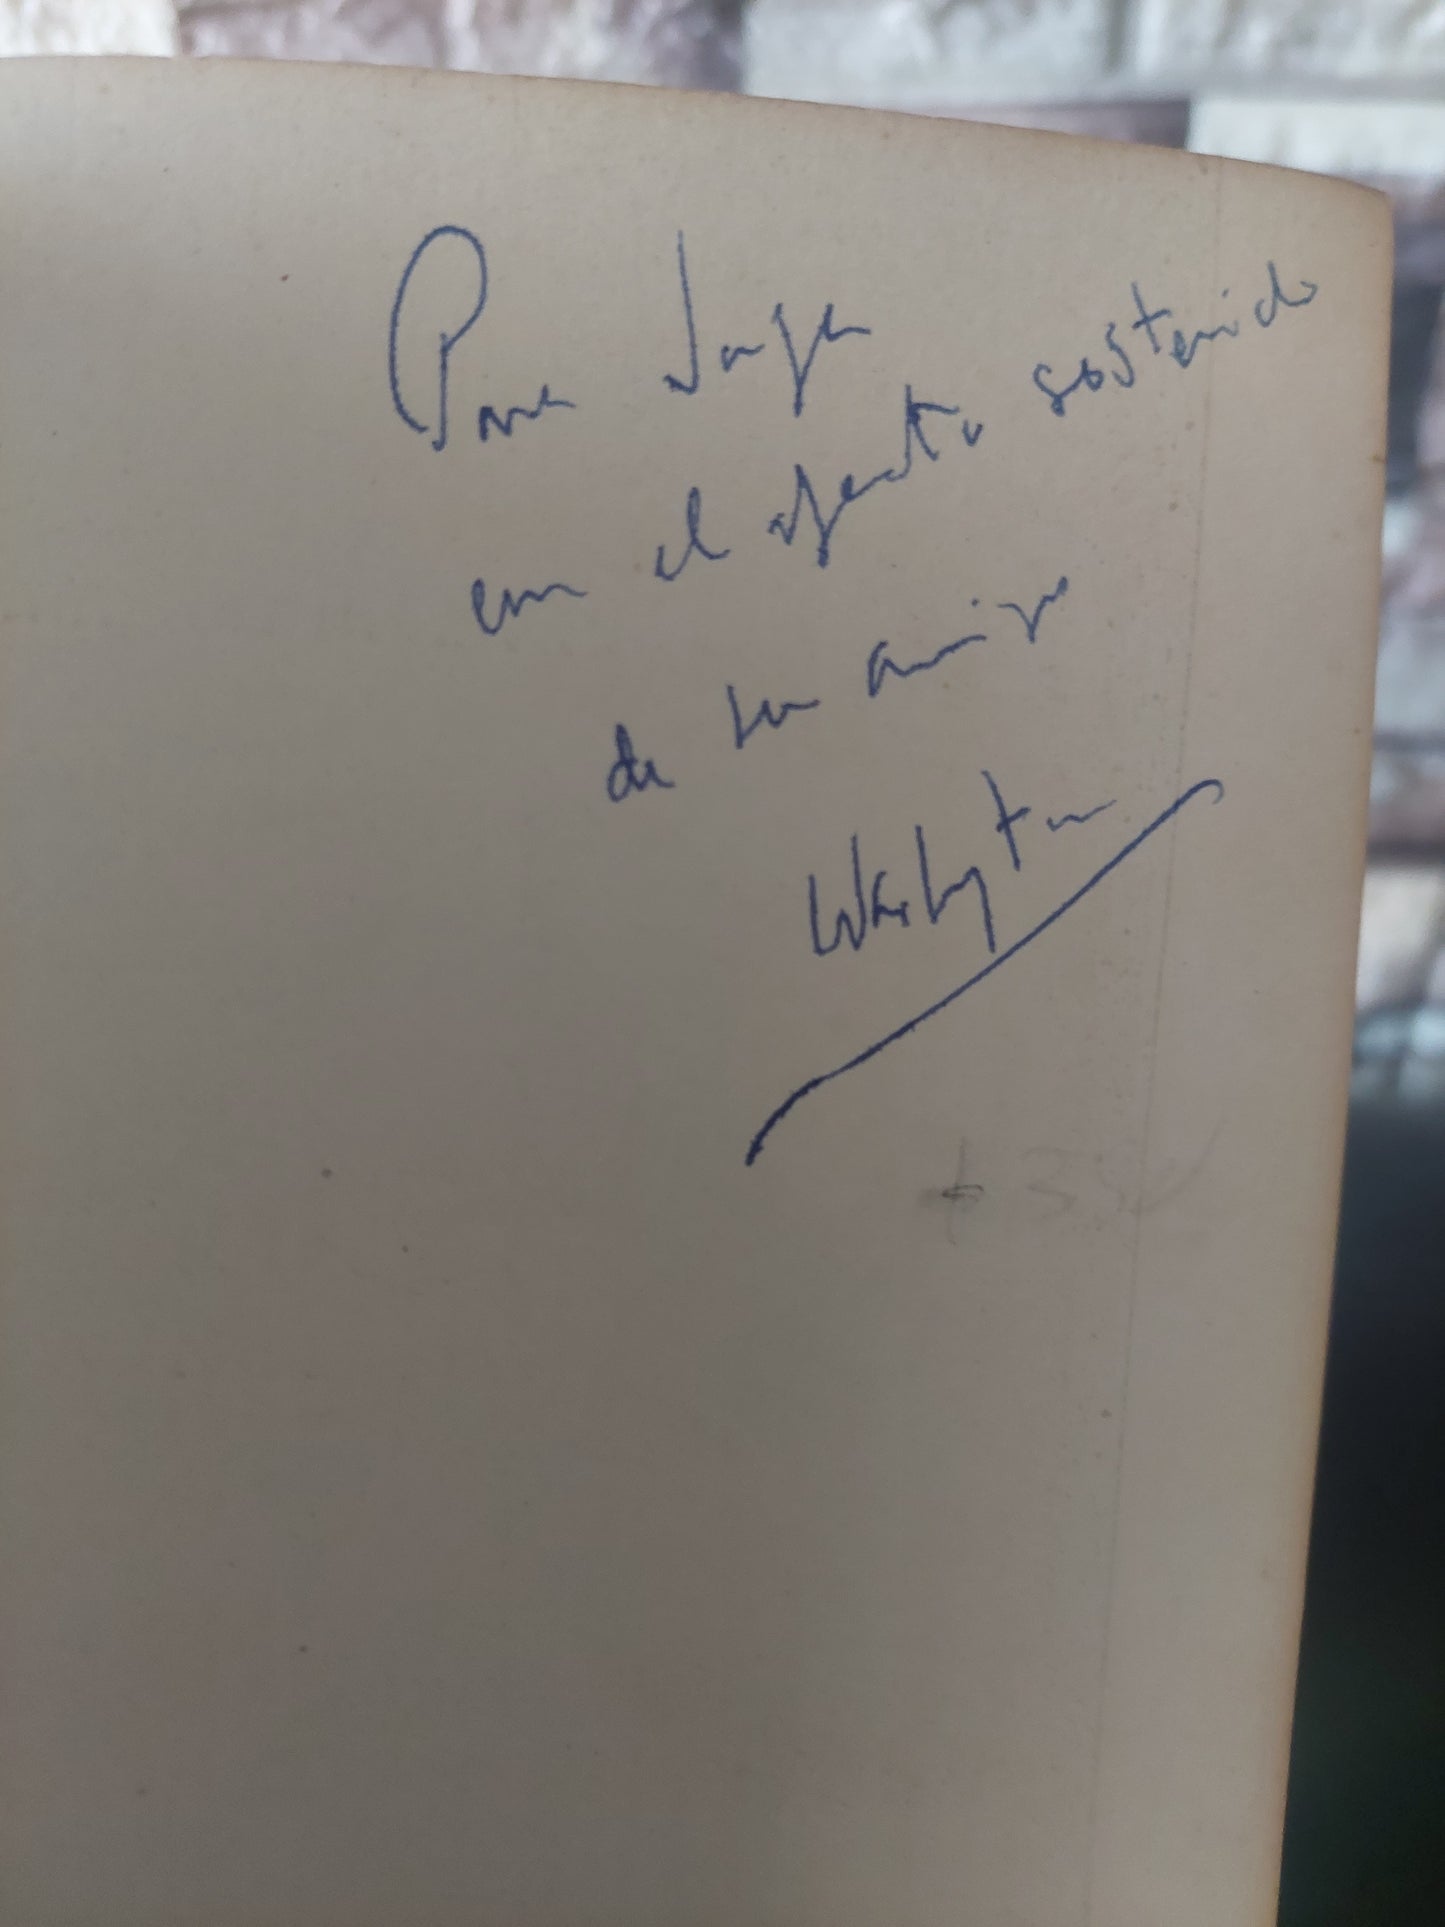 Para Jorge
con el afecto sostenido
de su amigo
Washington